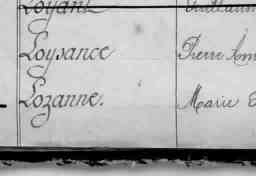 Loyant
Loysance Pierre
Lozanne. Marie